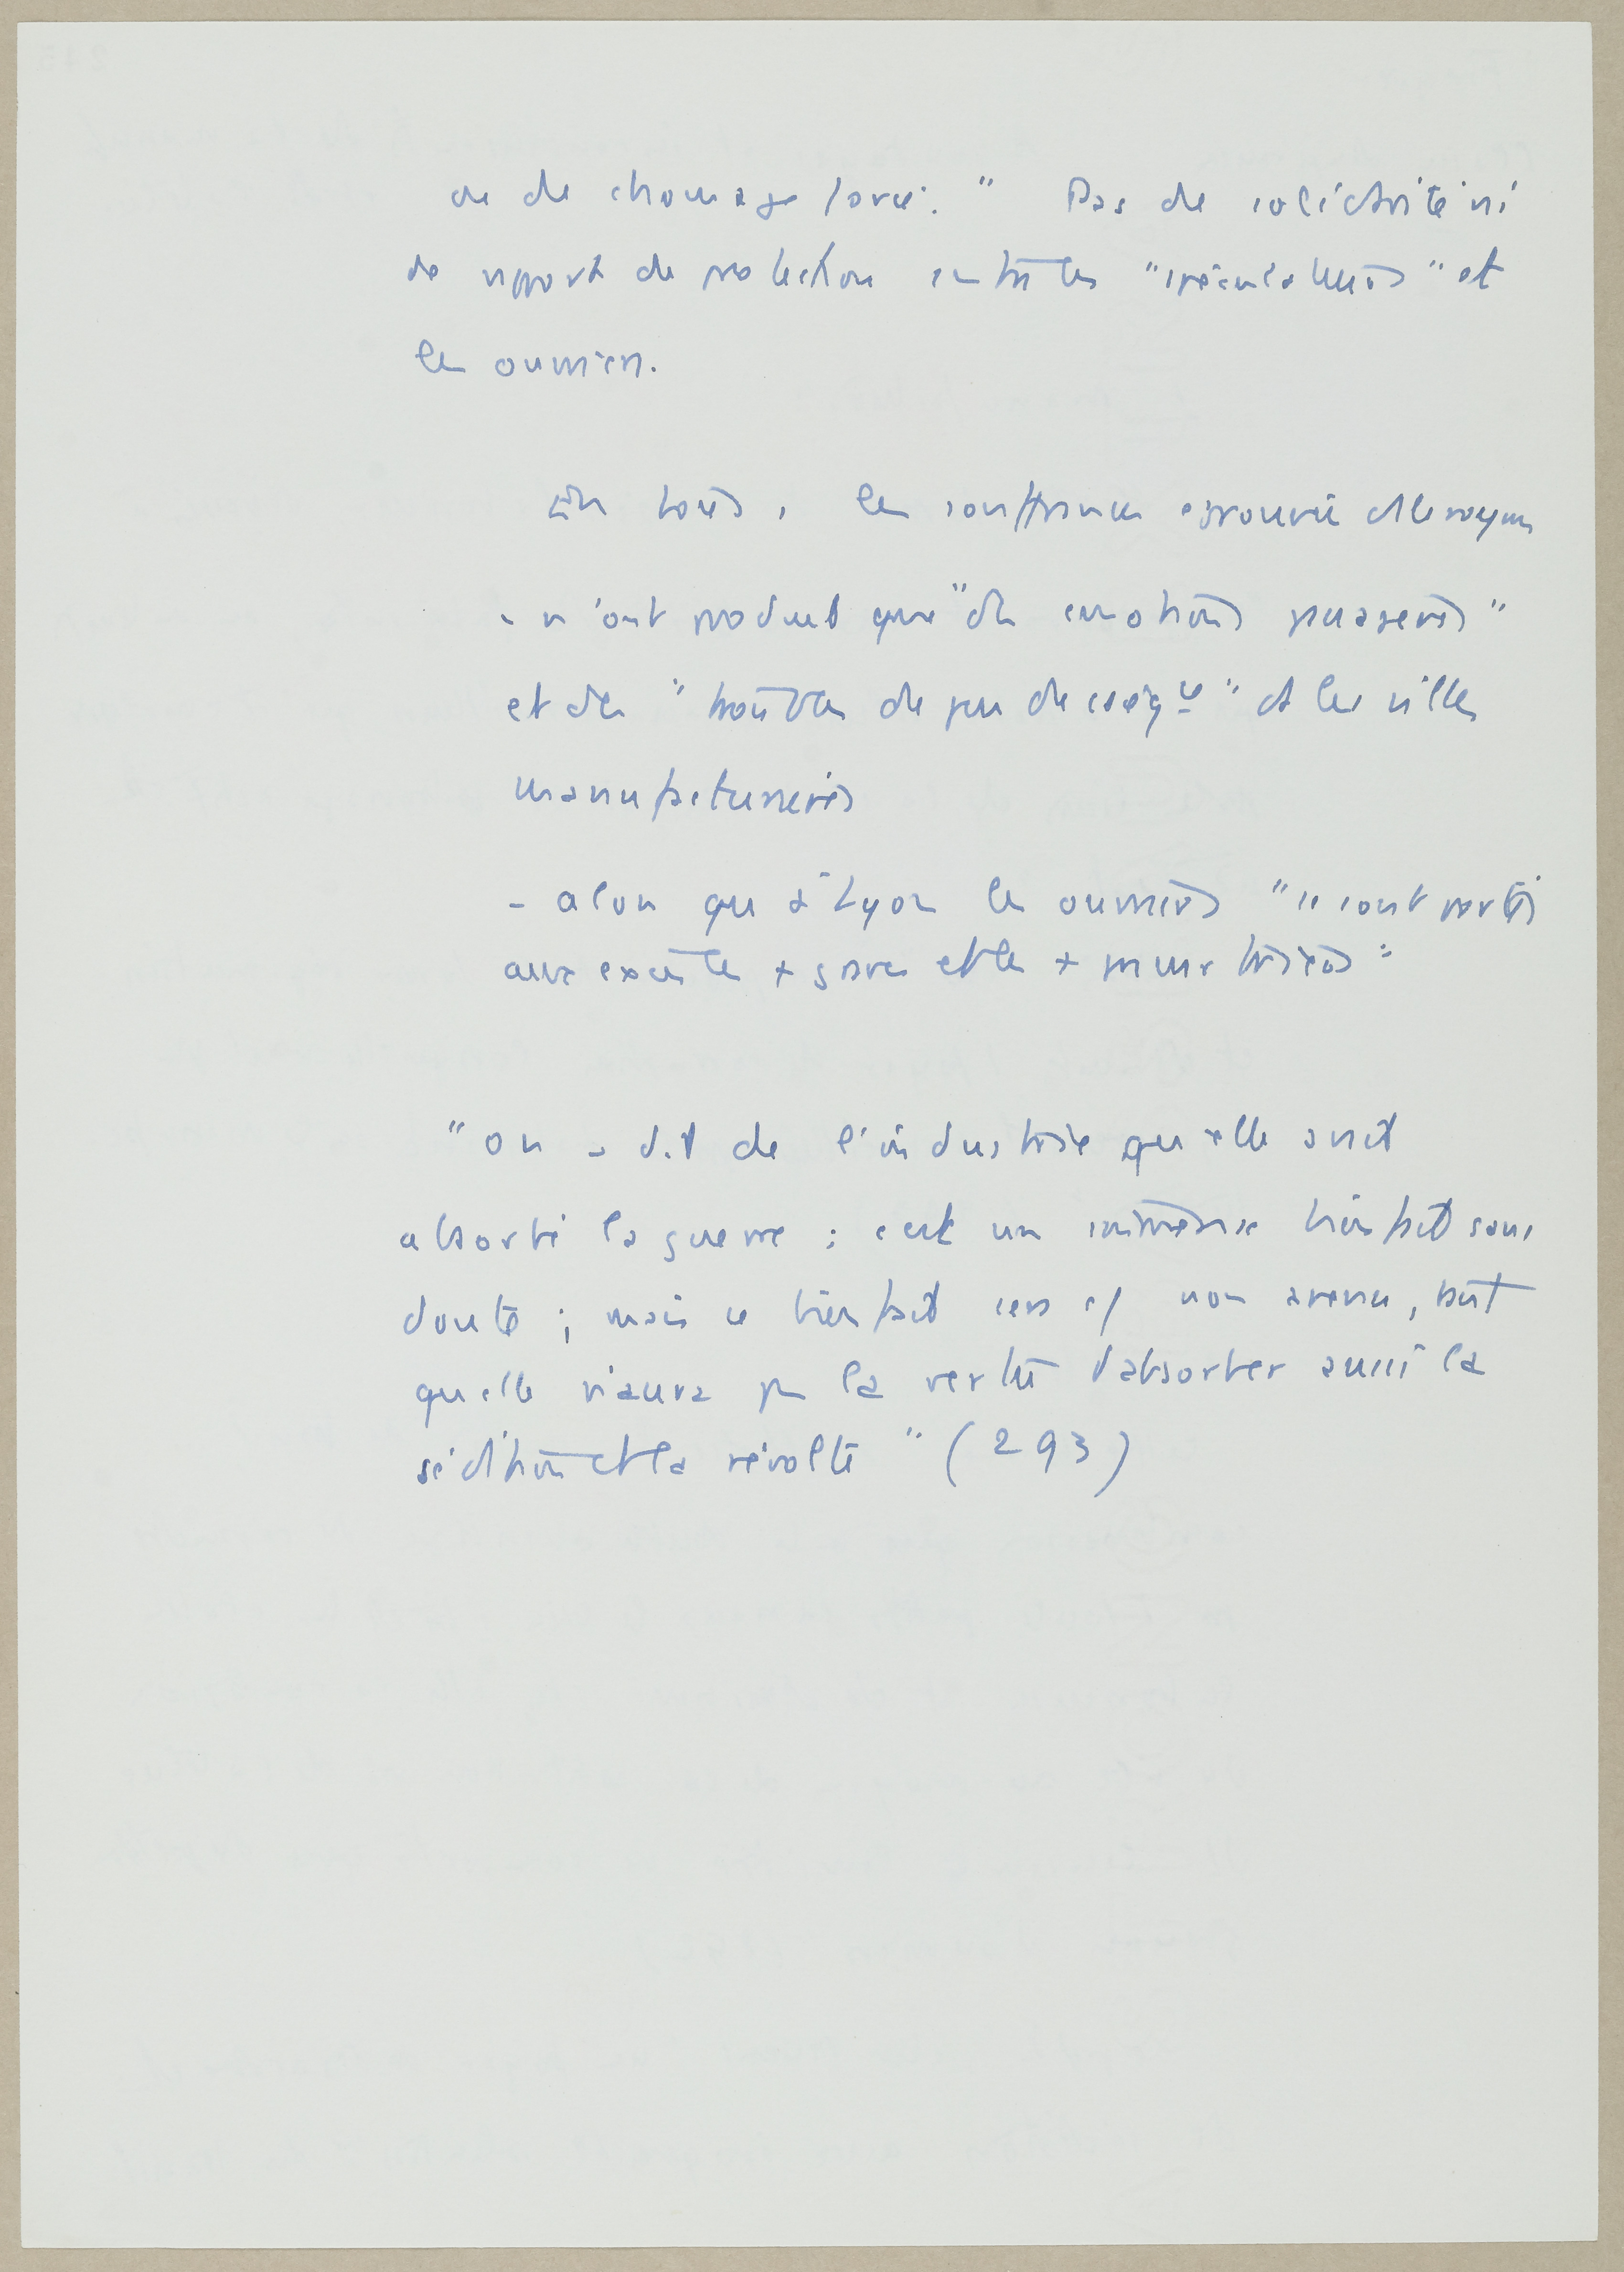 ou de chomage forcé." Pas de solidarité ni
de rapport de protection entre les "spéculateurs" et
les ouvriers.
les souffrances éprouvées ds le royaume
- n'ont produit que "des émotions passagères"
et des "troubles de peu de cséq ce" ds les villes
manufacturières
- alors qu'à Lyon les ouvriers "se sont portés
aux excès les + graves et les + meurtriers"
"On a dit de l'industrie qu'elle avait
absorbé la guerre ; c'est un immense bienfait sans
doute ; mais ce bienfait sera c/ non avenu, tant
qu'elle n'aura pas la vertu d'absorber aussi la
sédition et la révolte" (293)